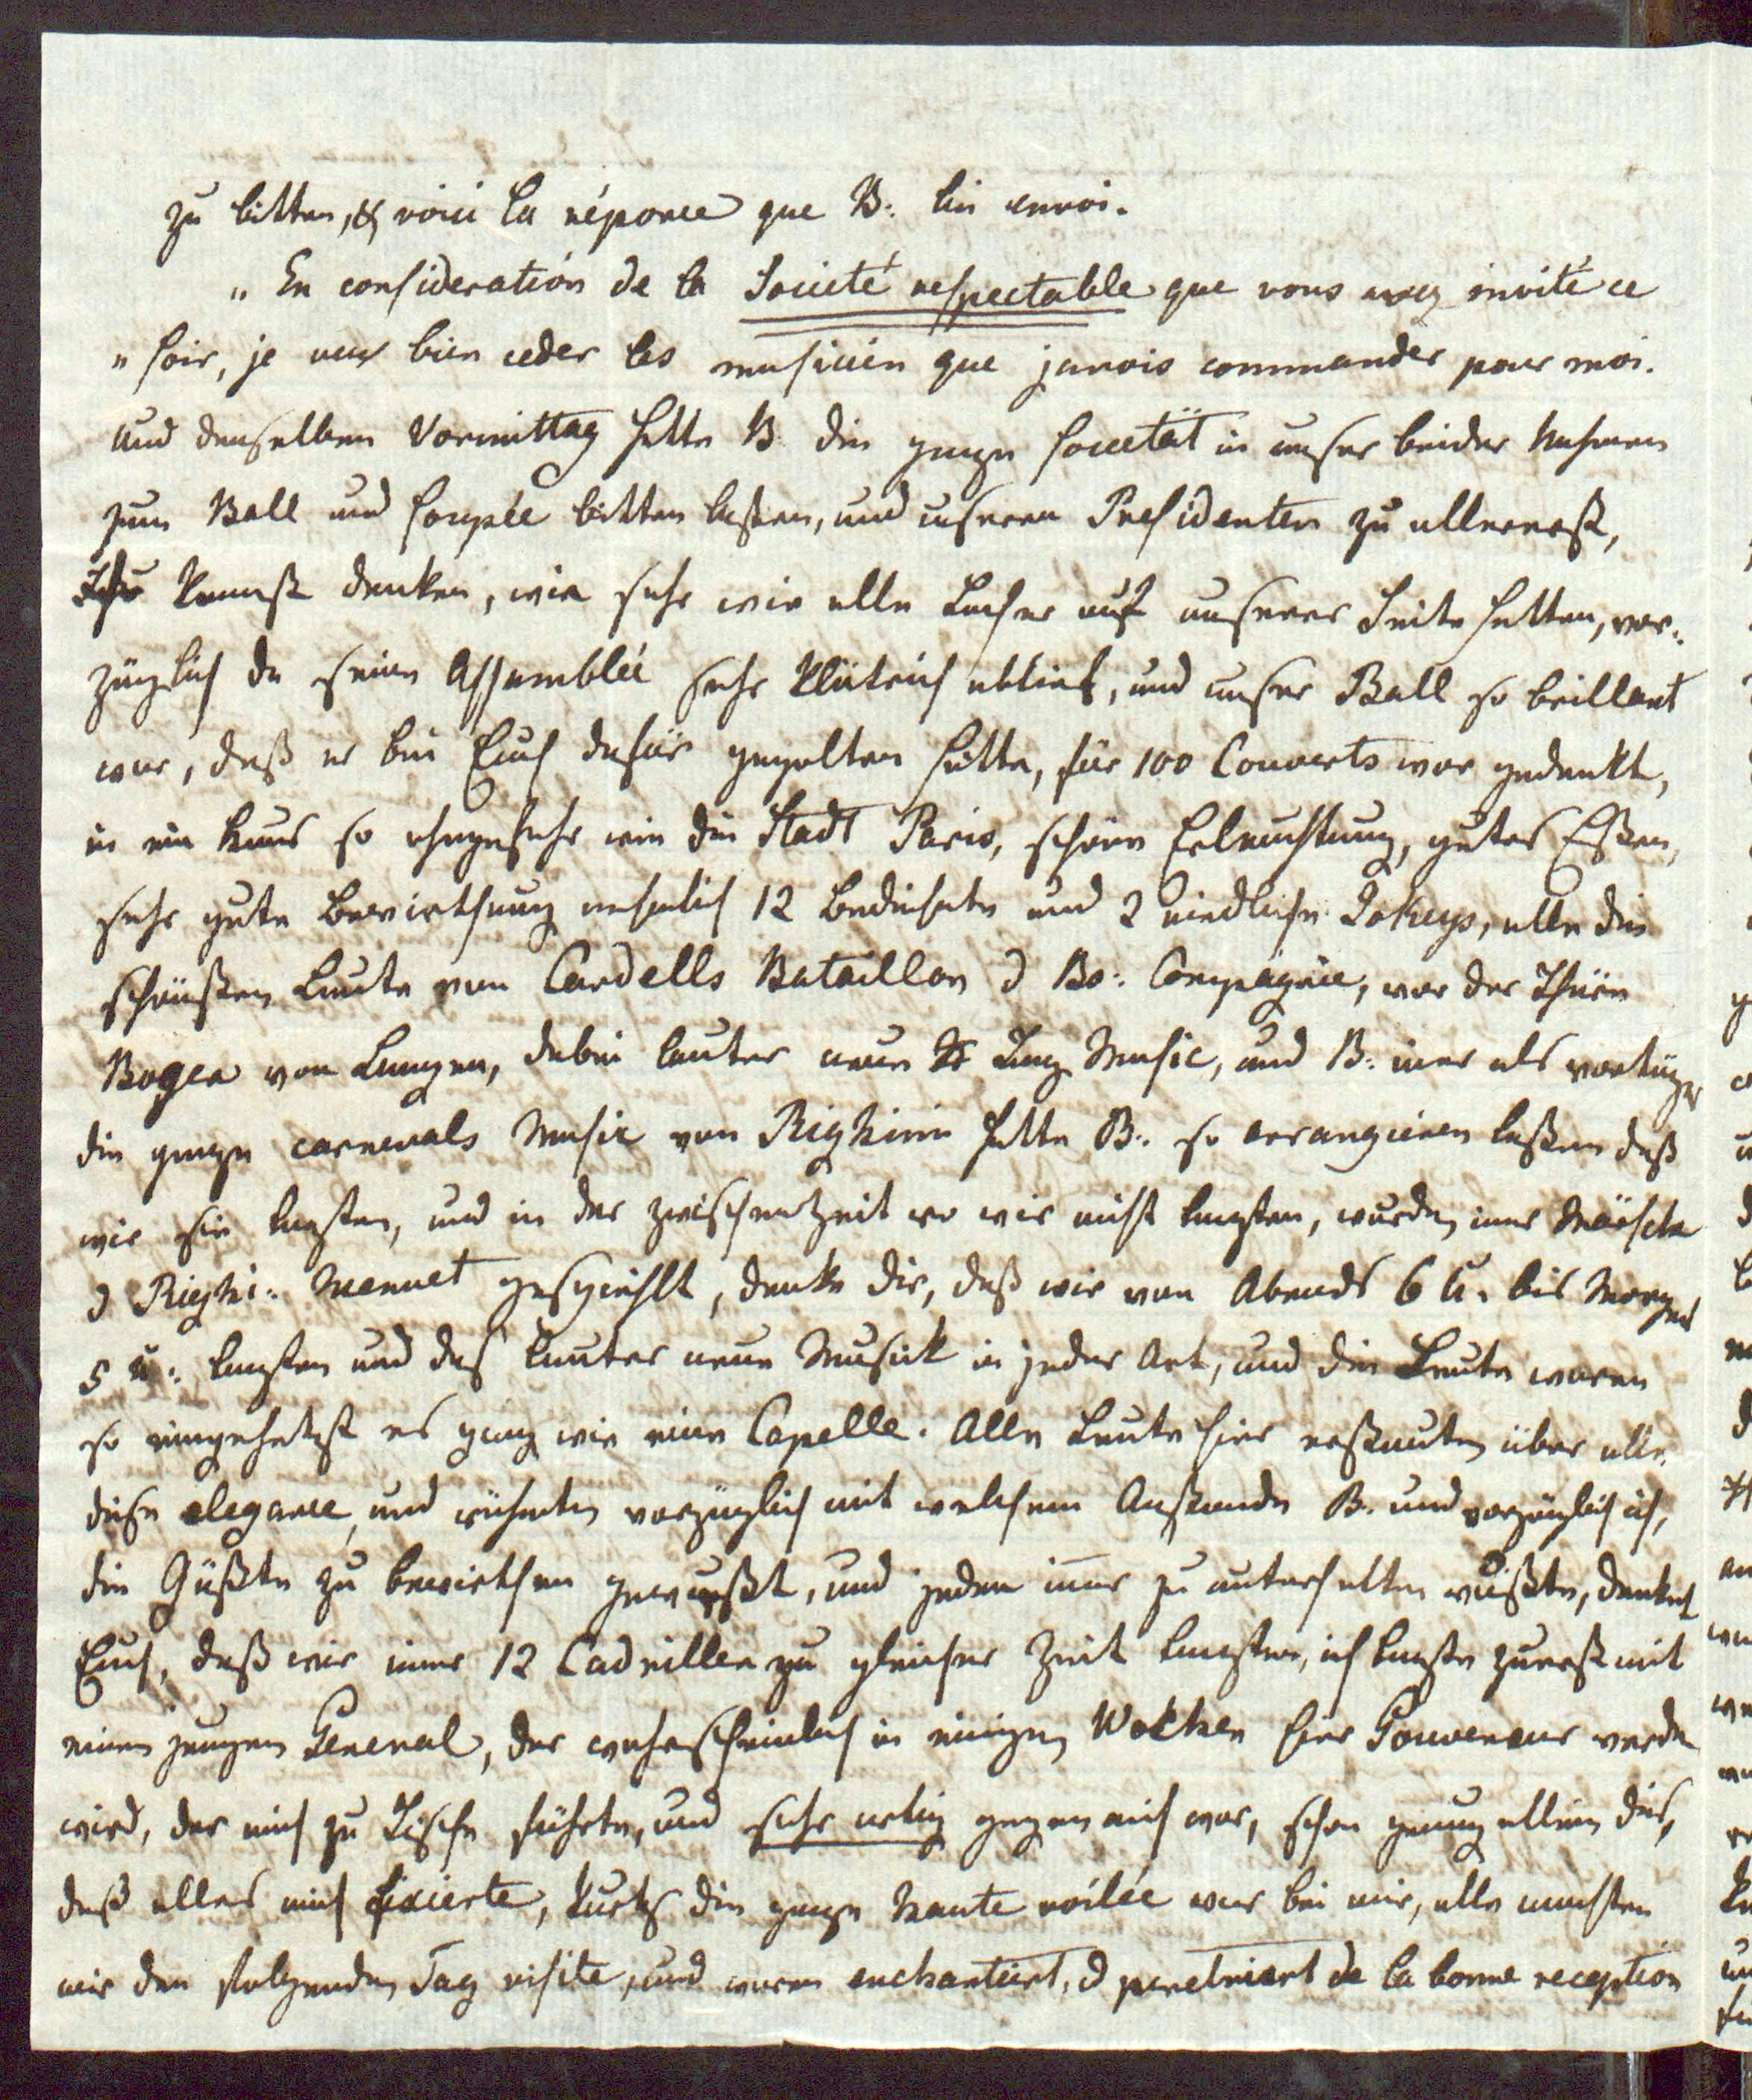 zu bitten, & voici la réponce que B: lui envoi.
„ En consideration de la Societé respectable que vous avez invité ce
„ soir, je veux bien ceder les musicien que javois commander pour moi.
und denselben Vormittag hatte B. die ganze Societät in unser beider Nahmen
zum Ball und Soupée bitten laßen, und unseren Presidenten zu allererst,
Ihr kennst denken, wie sehr wir alle Lacher auf unserer Seite hatten, vor:
züglich da seine Assemblée sehr klätrich ablief, und unser Ball so brillant
war, daß er bei Euch dafür gegolten hätte, für 100 Couverts war gedeckt,
in ein Haus so ohngefehr wie die Stadt Paris, schöne Erleuchtung, gutes Eßen,
sehr gute Bewirthung nehmlich 12 Bediente und 2 niedliche Jokeys, alle die
schönsten Leute von Cardells Bataillon & Bo: Compagnie, vor der Thüre
Bogen von Lampen, dabei lauter neue Tanz Music, und B: war als vortänzer
die ganze carnevals Music von Righinie hatte B: so arrangieren laßen daß
wir sie tanzten, und in der zwischenzeit wo wir nicht tanzten, wurden imer Märsche
& Righi: Menuet gespiehlt, denke dir, daß wir von Abends 6 U. bis Morgens
5 U: tanzten und das lauter neue Musick in jeder Art, und die Leute waren
so eingehetzt es ging wie eine Capelle. Alle Leute hier erstaunten über alle
diese elegance, und rühmten vorzüglich mit welchem Anstande B. und vorzüglich ich,
die Gäßte zu bewirthen gewußt, und jeden imer zu unterhalten wüßte, denket
Euch, daß wir imer 12 Cadrillen zu gleicher Zeit tanzten, ich tanzte zuerst mit
einen jungen General, der wahrscheinlich in einigen Wochen hier Gouverneur werden
wird, der mich zu Tische führte, und sehr artig gegen mich war, schon genung allein dies,
daß alles mich fixierte, kurtz die ganze haute volée war bei mir, alle machten
mir den folgenden Tag visite, und waren enchantiert, & penetriert de la bonne reception